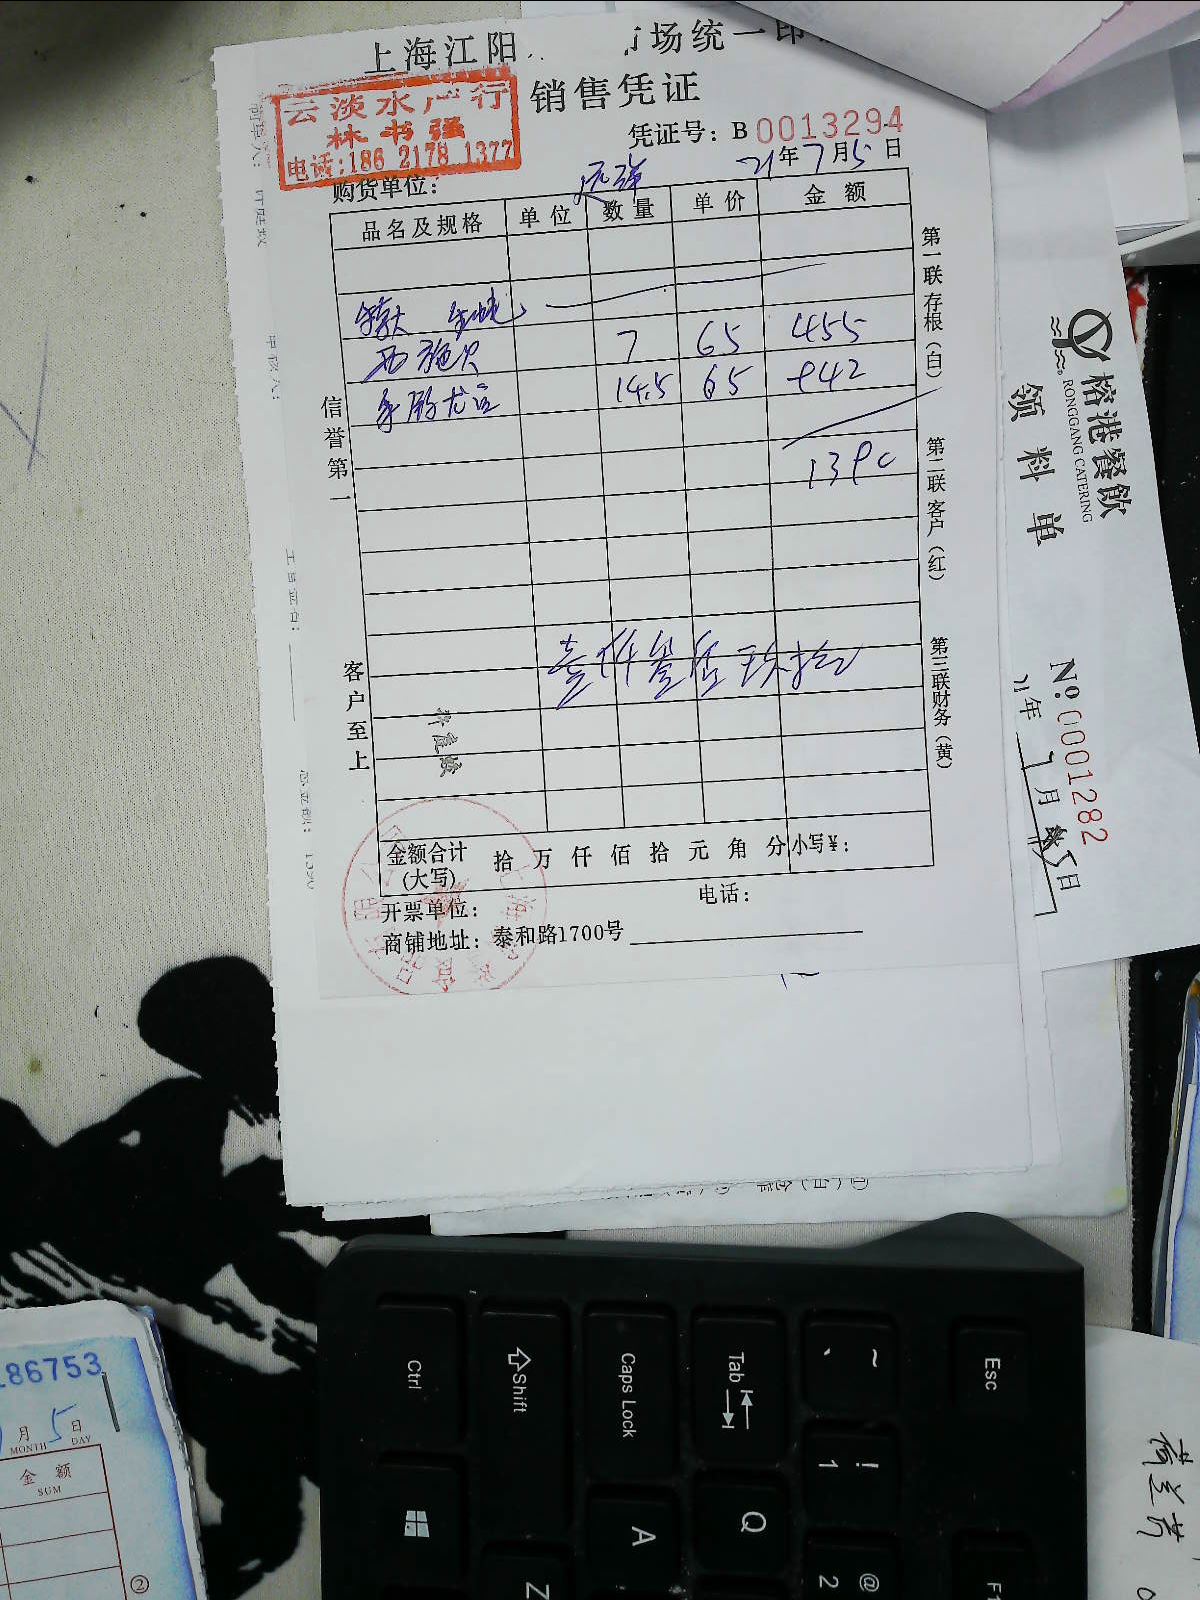 上海江阳
市场统一印
销售凭证
云淡水产行
林书强
电话:186 2178 1377
凭证号: B 0013294
21年7月5日
购货单位:
品名及规格 单位 数量 单价 金额
西施贝 7 65 455
14.5 65 942
139
壹仟叁佰玖拾
信誉第一
客户至上
第一联存根(白)
第二联客户(红)
第三联财务(黄)
金额合计(大写) 拾 万 仟 佰 拾 元 角 分 小写¥:
开票单位:
电话:
商铺地址: 泰和路1700号
榕港餐飲
RONGGANG CATERING
领料单
№ 0001282
年 7月 5日
186753
月 5 日
MONTH DAY
金额
SUM
②
Esc
~
`
Tab
Caps Lock
Shift
Ctrl
!
1
Q
A
Z
@
2
F1